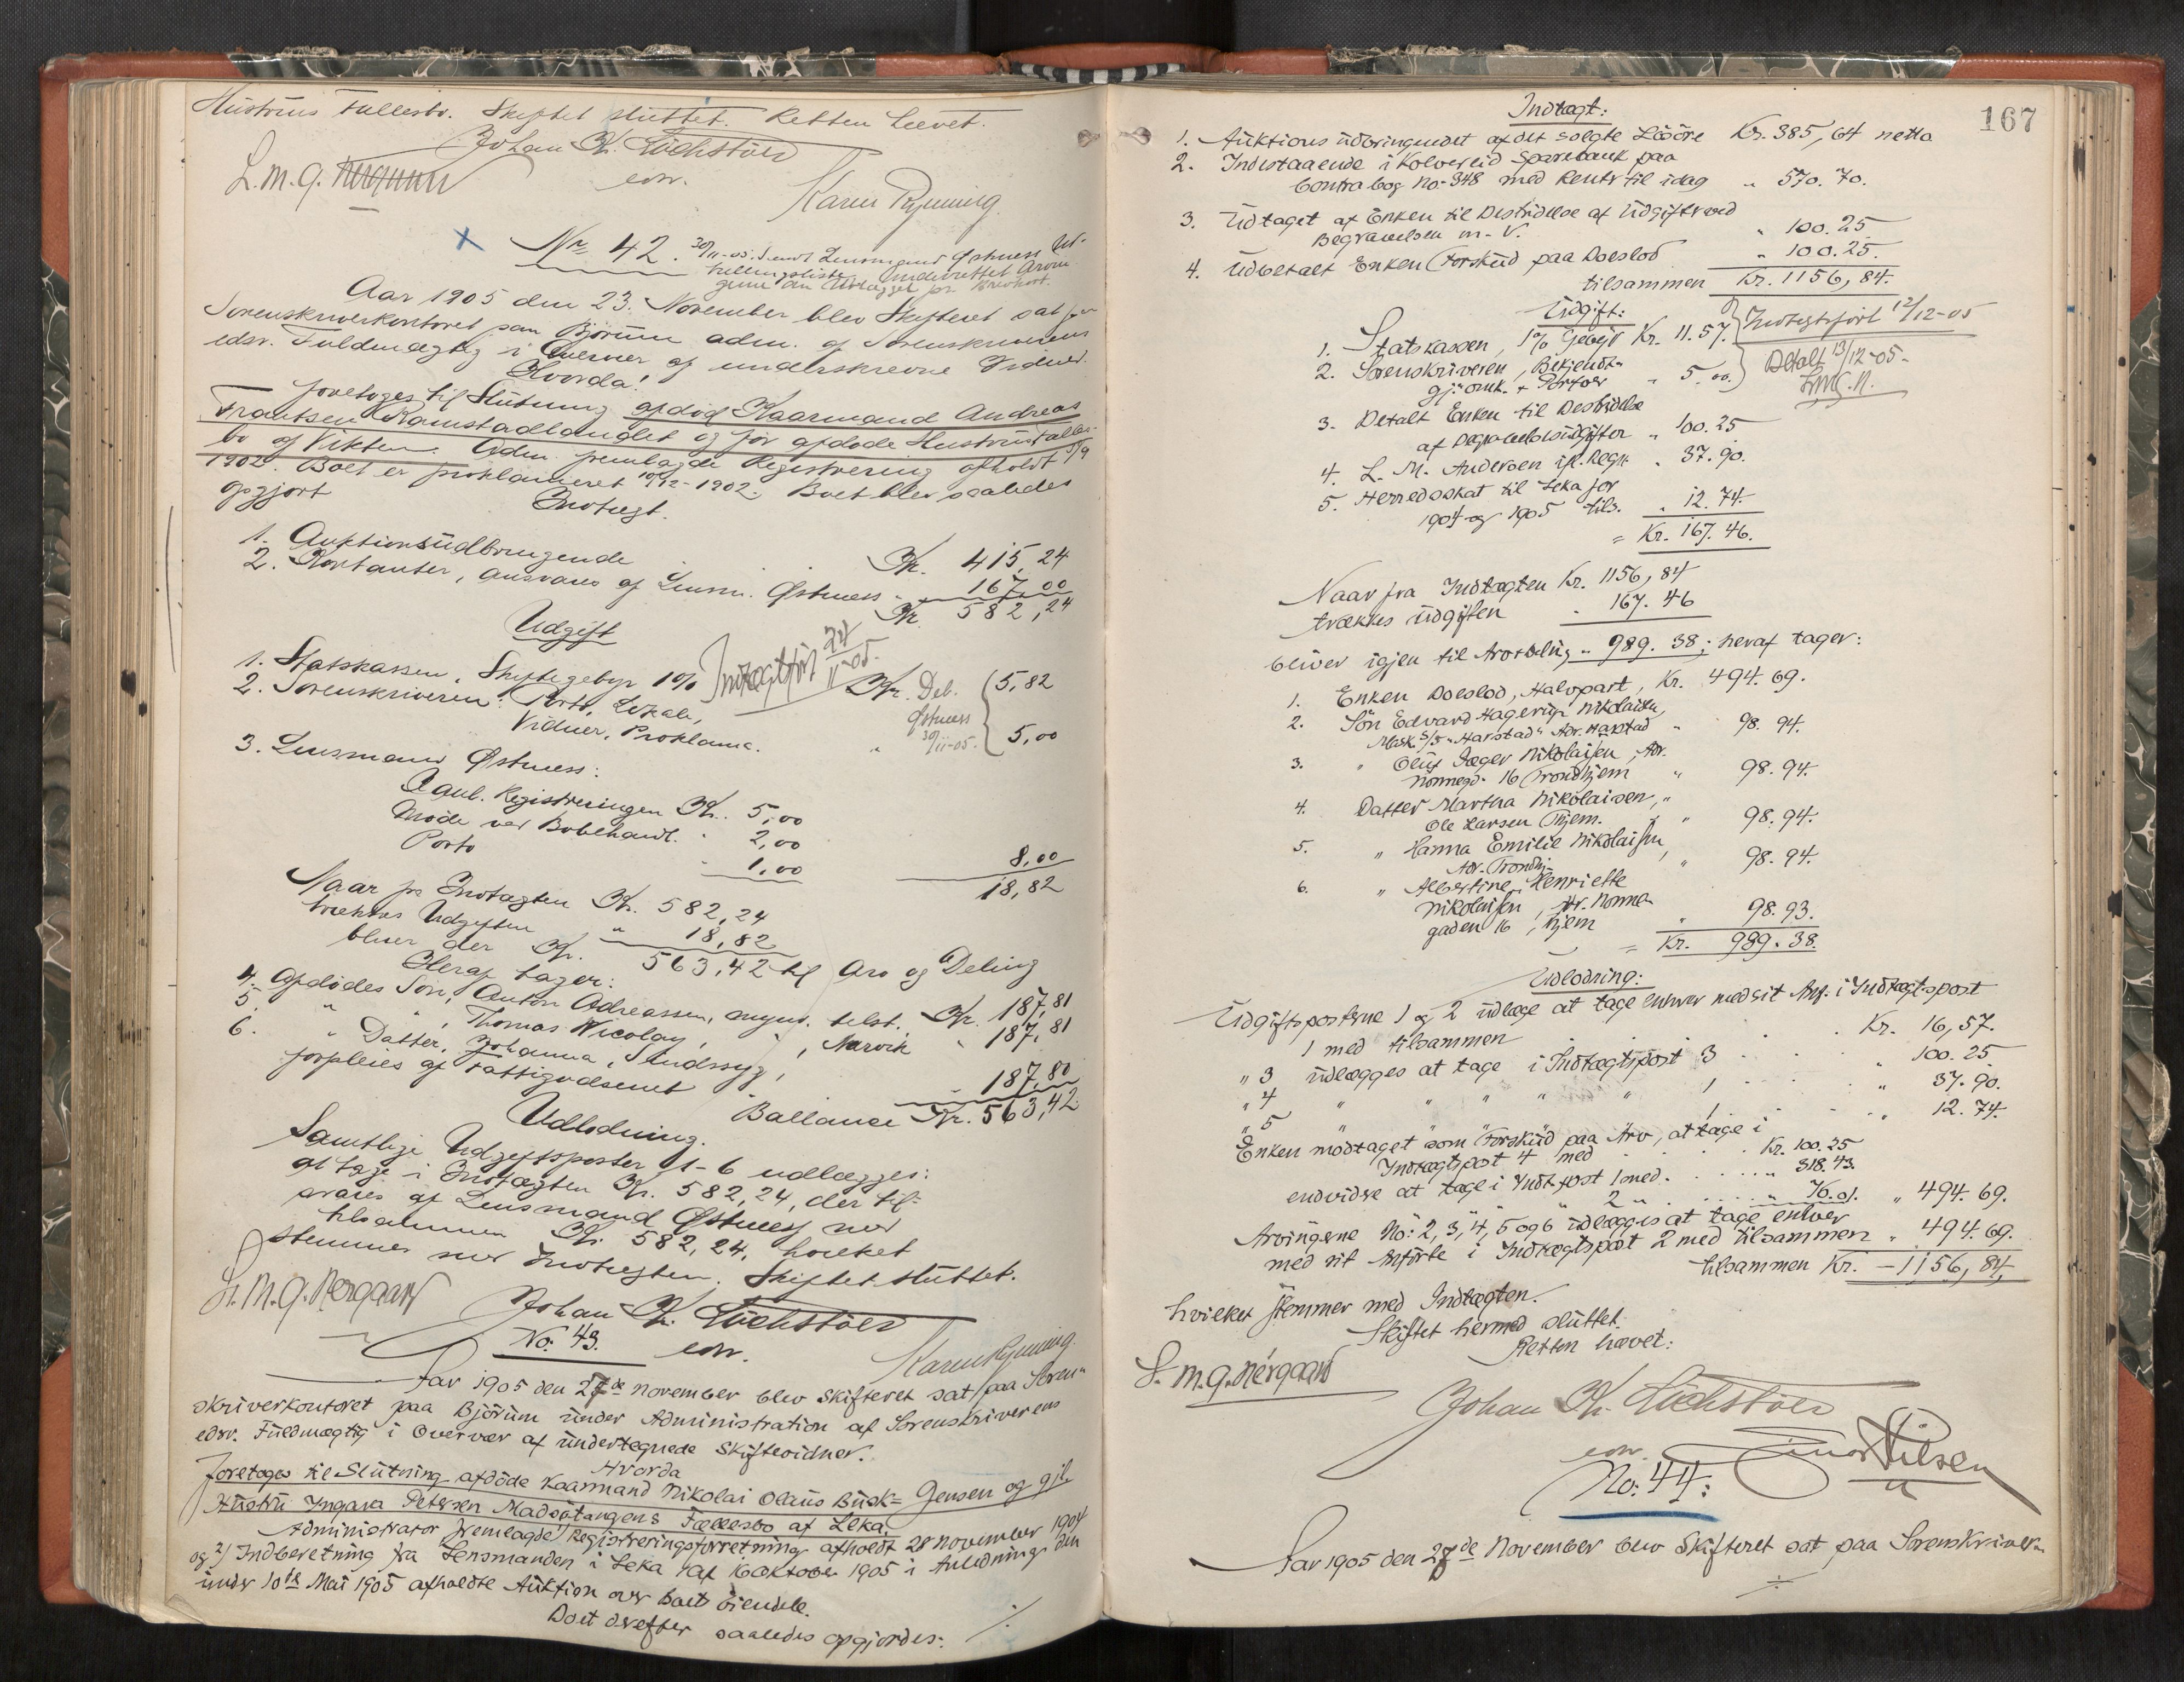 Hustrus Fællesbo. Skiftet sluttet. Retten hævet.
Johan Kr. Lüchstöer
edsv.
L. M. G. Nergaard
Karen Rynning.
Nr. 42. 30/11-05: Sendt Lensmand Østness Ud-
Underrettet Arvin-
gerne om Udlægget pr. Brevkort.
Aar 1905 den 23. November blev Skifteret sat paa
Sorenskriverkontoret paa Bjørum adm. af Sorenskriverens
edsv. Fuldmægtig i Overvær af underskrevne Vidner.
Hvorda!
foretoges til Slutning afdød Kaarmand Andreas
Frantsen Ramstadlandet og før afdøde Hustrus Fælles-
bo af Vikten. Adm. fremlagde Registrering afholdt 5/9
1902. Boet er proklameret 10/12-1902. Boet blev saaledes
opgjort
Indtægt.
1. Auktionsudbringende Kr. 415,24
2. Kontanter, ansvares af Lensm. Østness " 167,00
Kr. 582,24
Udgift
1. Statskassen, Skiftegebyr 1% Kr. 5,82
Indtægtsført 24/11-05.
2. Sorenskriveren: Porto, Lokale,
Vidner, Proklama. " 5,00
Bet.
Østness
30/11-05.
3. Lensmand Østness:
Registreringen Kr. 5,00
Møde ved Bobehandl. " 2,00
Porto " 1,00 8,00
18,82
Naar fra Indtægten Kr. 582,24
trækkes Udgiften " 18,82
bliver der Kr. 563,42 til Arv og Deling
Heraf tager:
4. Afdødes Søn, Anton Adreassen, mynd. Kr. 187,81
5. " " , Thomas Nicolay, " , Narvik " 187,81
6. " Datter, Johanna, Sindssyg,
forpleies af Fattigvæsenet " 187,80
Ballance Kr. 563,42
Udlodning.
Samtlige Udgiftsposter 1-6 udlægges:
at tage i Indtægten Kr. 582,24, der til-
svares af Lensmand Østness med
tilsammen Kr. 582,24, hvilket
stemmer med Indtægten. Skiftet sluttet.
L. M. G. Nergaard
Johan Kr. Lüchstöer
edsv.
Karen Rynning.
No. 43.
Aar 1905 den 27de November blev Skifteret sat paa Soren-
skriverkontoret paa Bjørum under Administration af Sorenskriverens
edsv. Fuldmægtig i Overvær af undertegnede Skiftevidner.
Hvorda
foretoges til Slutning afdøde Kaarmand Nikolai Olaus Busk= Jensen og gjl.
Hustru Ingara Petersen Madsøtangens Fællesbo af Leka.
Administrator fremlagde 1) Registreringsforretning afholdt 28 November 1904
og 2) Indberetning fra Lensmanden i Leka af 16 Oktober 1905 i Anledning den
under 10de Mai 1905 afholdte Auktion over Boets Eiendele.
Boet derefter saaledes opgjordes: ./.
167
Indtægt:
1. Auktions udbringendet af det solgte Løsøre Kr. 385,64 netto
2. Indestaaende i Kolvereid Sparebank paa
Contrabog No. 348 med Renter til idag " 570.70.
3. Udtaget af Enken til Bestridelse af Udgifter ved
Begravelsen m. V. " 100.25
4. Udbetalt Enken Forskud paa Boeslod " 100.25.
tilsammen Kr. 1156,84.
Udgift:
1. Statskassen, 1% Gebyr Kr. 11.57. Indtægtsført 12/12-05
2. Sorenskriveren, Bekjendt-
gj. omk. + Portoer " 5,00. Betalt 13/12-05.
L.M.G.N.
3. Betalt Enken til Bestridelse
af Begravelsesudgifter " 100.25
4. L. M. Andersen ifl. Regn. " 37.90.
5. Herredsskat til Leka for
1904 og 1905 tils. " 12.74.
= Kr. 167.46.
Naar fra Indtægten Kr. 1156,84
trækkes Udgiften " 167.46
bliver igjen til Arvedeling " 989.38; heraf tager:
1. Enken Boeslod, Halvpart, Kr. 494.69.
2. Søn Edvard Hagerup Nikolaisen,
Mask. S/S "Harstad" Adr. Harstad " 98.94.
3. " Oluf Jæger Nikolaisen, Adr.
Nonnegd. 16 Trondhjem " 98.94.
4. Datter Martha Nikolaisen, "
Ole Larsen Thjem. " 98.94.
5. " Hanna Emilie Nikolaisen,
Adr. Trondhj. " 98.94.
6. " Albertine Henriette
Nikolaisen, Adr. Nonne-
gaden 16, Thjem " 98.93.
= Kr. 989.38.
Udlodning:
Udgiftsposterne 1 og 2 udlæge at tage enhver med sit Anf. i Indtægtspost
1 med tilsammen . . . . . Kr. 16,57.
" 3 udlægges at tage i Indtægtspost 3 . . . " 100.25
" 4 " " " " " 1 . . . " 37.90.
" 5 " " " " " 1 . . . " 12.74.
Enken modtaget som Forskud paa Arv, at tage i
Indtægtspost 4 med . . . . Kr. 100.25
endvidre at tage i Indt. post 1 med . . . " 318.43
2 " . . . " 76.01. " 494.69.
Arvingerne No: 2, 3, 4, 5 og 6 udlægges at tage enhver
med sit Anførte i Indtægtspost 2 med tilsammen " 494.69.
tilsammen Kr. - 1156,84,
hvilket stemmer med Indtægten.
Skiftet hermed sluttet.
Retten hævet:
L. M. G. Nergaard
Johan Kr. Lüchstöer
edsv.
Nilsen
No: 44:
Aar 1905 den 27de November blev Skifteret sat paa Sorenskriver-
./.